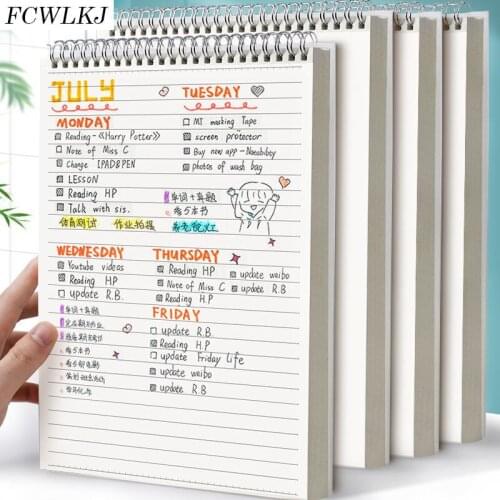 FCWLKJ
JULY
MONDAY
Reading-《Harry Potter》
Note of Miss C
Change IPAD&PEN
LESSON
Reading HP
Talk with sis.
体育测试 作业拍摄
TUESDAY
MT masking Tape
screen protector
Buy new app-Notability
photos of wash bag
单词+真题
考5本书
WEDNESDAY
Youtube videos
Reading HP
update R.B.
单词+真题
考5本书
THURSDAY
Reading HP
update weibo
Note of Miss C
update R.B
Reading H.P
FRIDAY
update R.B.
Reading H.P
update Friday Life
update weibo
update R.B